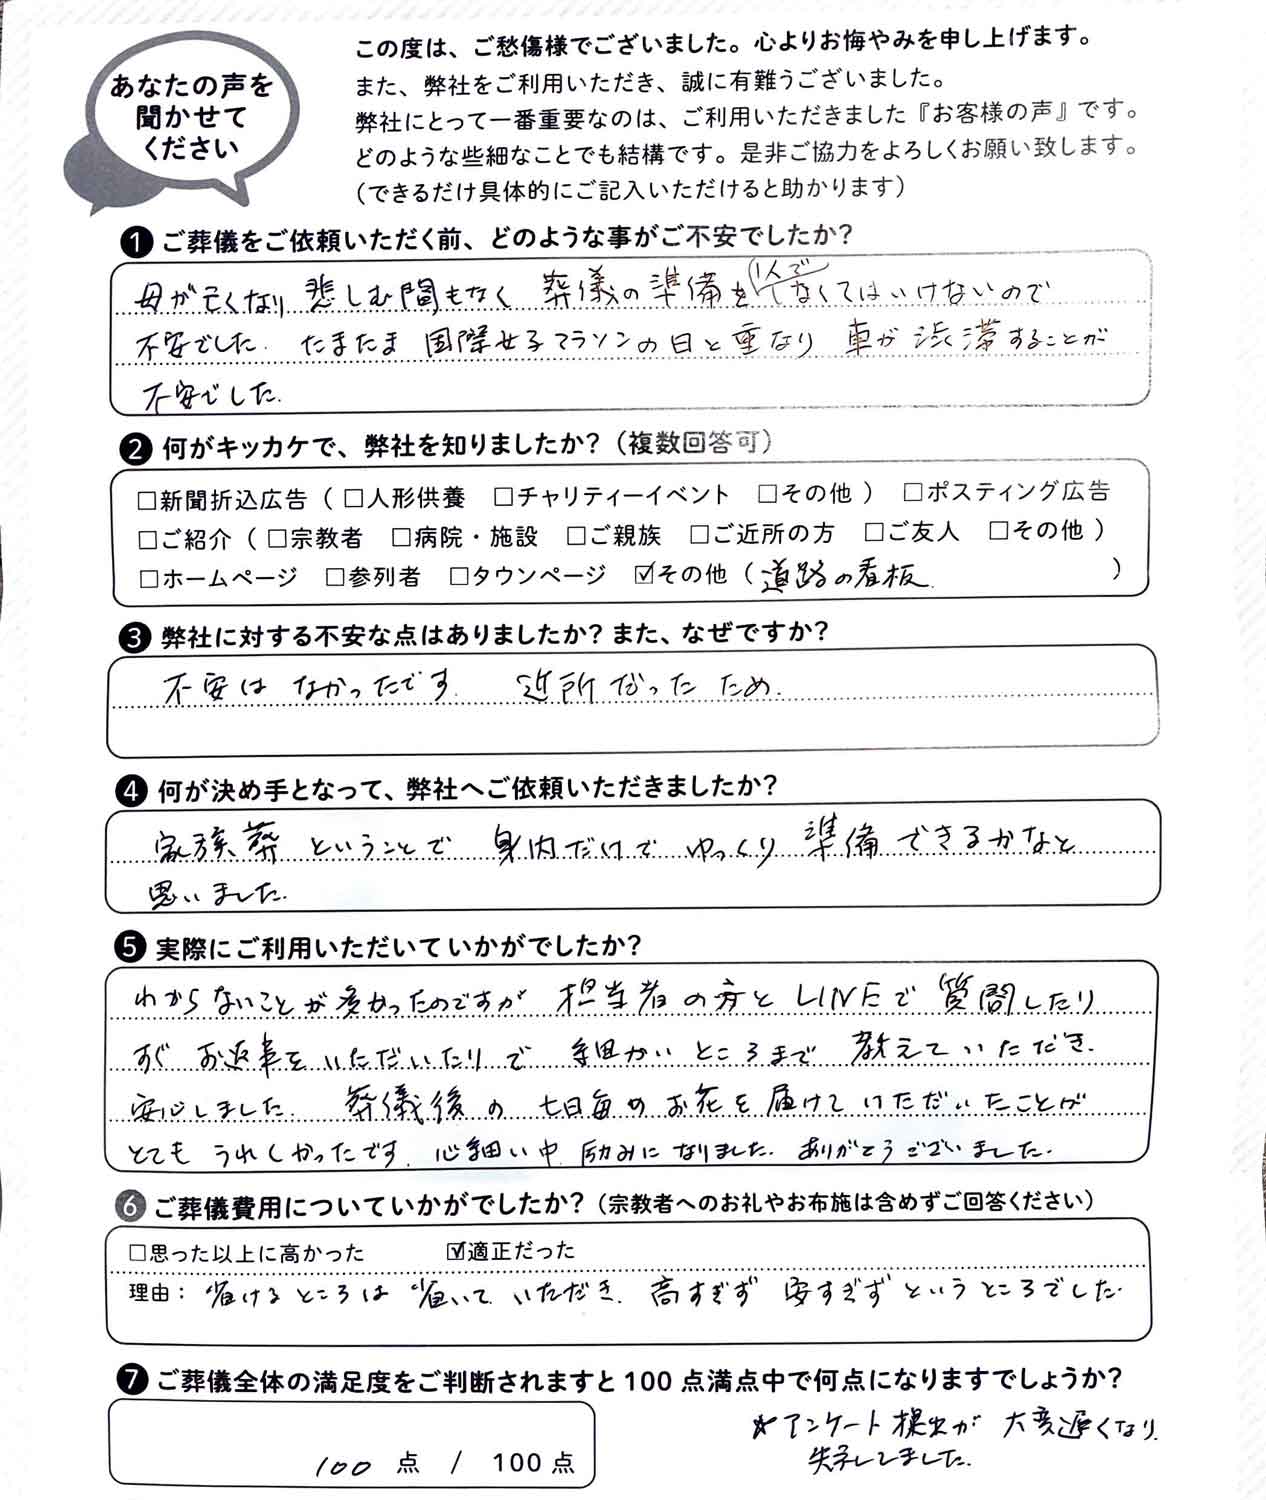 あなたの声を
聞かせて
ください
この度は、ご愁傷様でございました。心よりお悔やみを申し上げます。
また、弊社をご利用いただき、誠に有難うございました。
弊社にとって一番重要なのは、ご利用いただきました『お客様の声』です。
どのような些細なことでも結構です。是非ご協力をよろしくお願い致します。
（できるだけ具体的にご記入いただけると助かります）
❶ ご葬儀をご依頼いただく前、どのような事がご不安でしたか？
母が亡くなり 悲しむ間もなく 葬儀の準備を1人でしなくてはいけないので
不安でした. たまたま 国際女子マラソンの日と重なり 車が渋滞することが
不安でした.
❷ 何がキッカケで、弊社を知りましたか？（複数回答可）
□新聞折込広告（ □人形供養 □チャリティーイベント □その他 ） □ポスティング広告
□ご紹介（ □宗教者 □病院・施設 □ご親族 □ご近所の方 □ご友人 □その他 ）
□ホームページ □参列者 □タウンページ ☑その他（ 道路の看板. ）
❸ 弊社に対する不安な点はありましたか？また、なぜですか？
不安は なかったです. 近所だった ため.
❹ 何が決め手となって、弊社へご依頼いただきましたか？
家族葬 ということで 身内だけで ゆっくり 準備できるかなと
思いました.
❺ 実際にご利用いただいていかがでしたか？
わからないことが多かったのですが 担当者の方と LINEで 質問したり
すぐ お返事を いただいたりで 細かい ところまで 教えて いただき.
安心しました. 葬儀後の 七日毎の お花を 届けて いただいたことが
とても うれしかったです. 心細い中. 励みに なりました. ありがとうございました.
❻ ご葬儀費用についていかがでしたか？（宗教者へのお礼やお布施は含めずご回答ください）
□思った以上に高かった ☑適正だった
理由： 省ける ところは 省いて いただき. 高すぎず 安すぎず というところでした.
❼ ご葬儀全体の満足度をご判断されますと 100 点満点中で何点になりますでしょうか？
100 点 / 100 点
☆アンケート 提出が 大変遅くなり.
失礼しました.